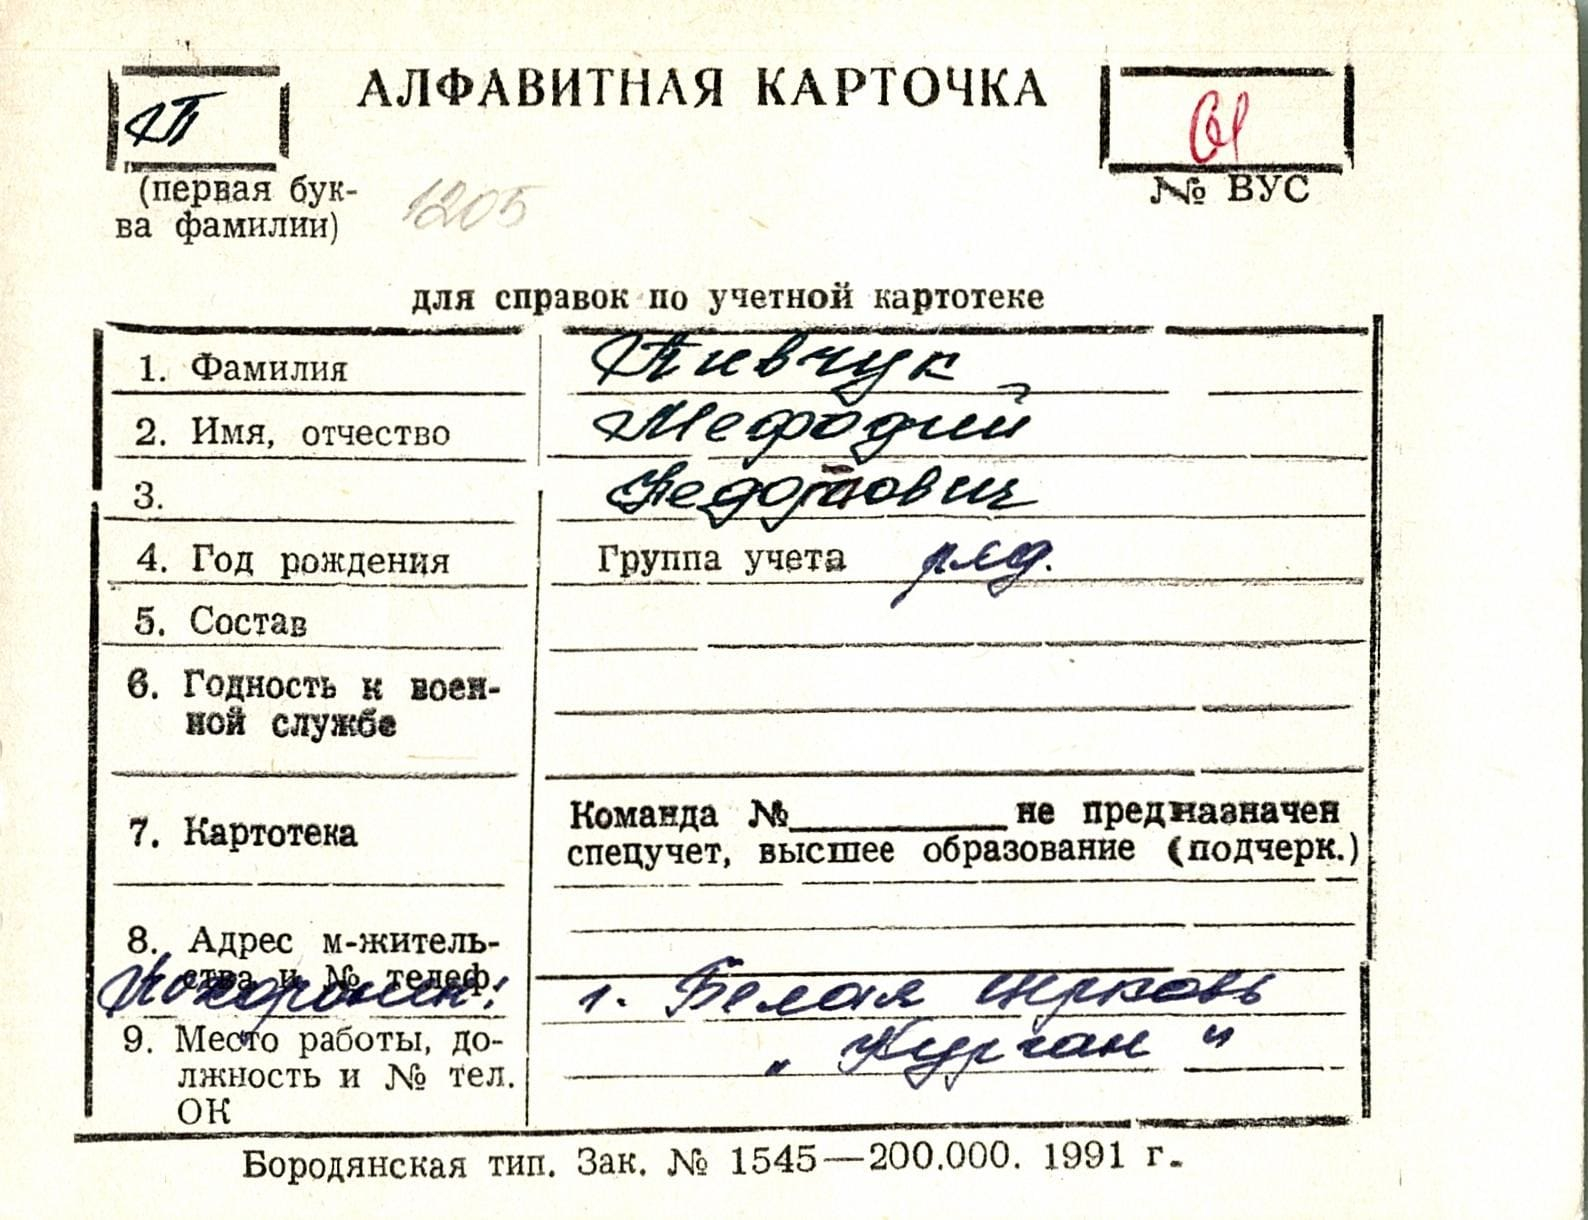 АЛФАВИТНАЯ КАРТОЧКА
П
(первая бук-
ва фамилии)
1205
№ ВУС
для справок по учетной картотеке
1. Фамилия Пивчук
2. Имя, отчество Мефодий
3. Федотович
4. Год рождения Группа учета ряд.
5. Состав
6. Годность к воен-
ной службе
7. Картотека Команда №__________не предназначен
спецучет, высшее образование (подчерк.)
8. Адрес м-жительь-
ства и № телеф.
Похоронен: г. Белая Церковь
9. Место работы, до- „Курган"
лжность и № тел.
ОК
Бородянская тип. Зак. № 1545—200.000. 1991 г.